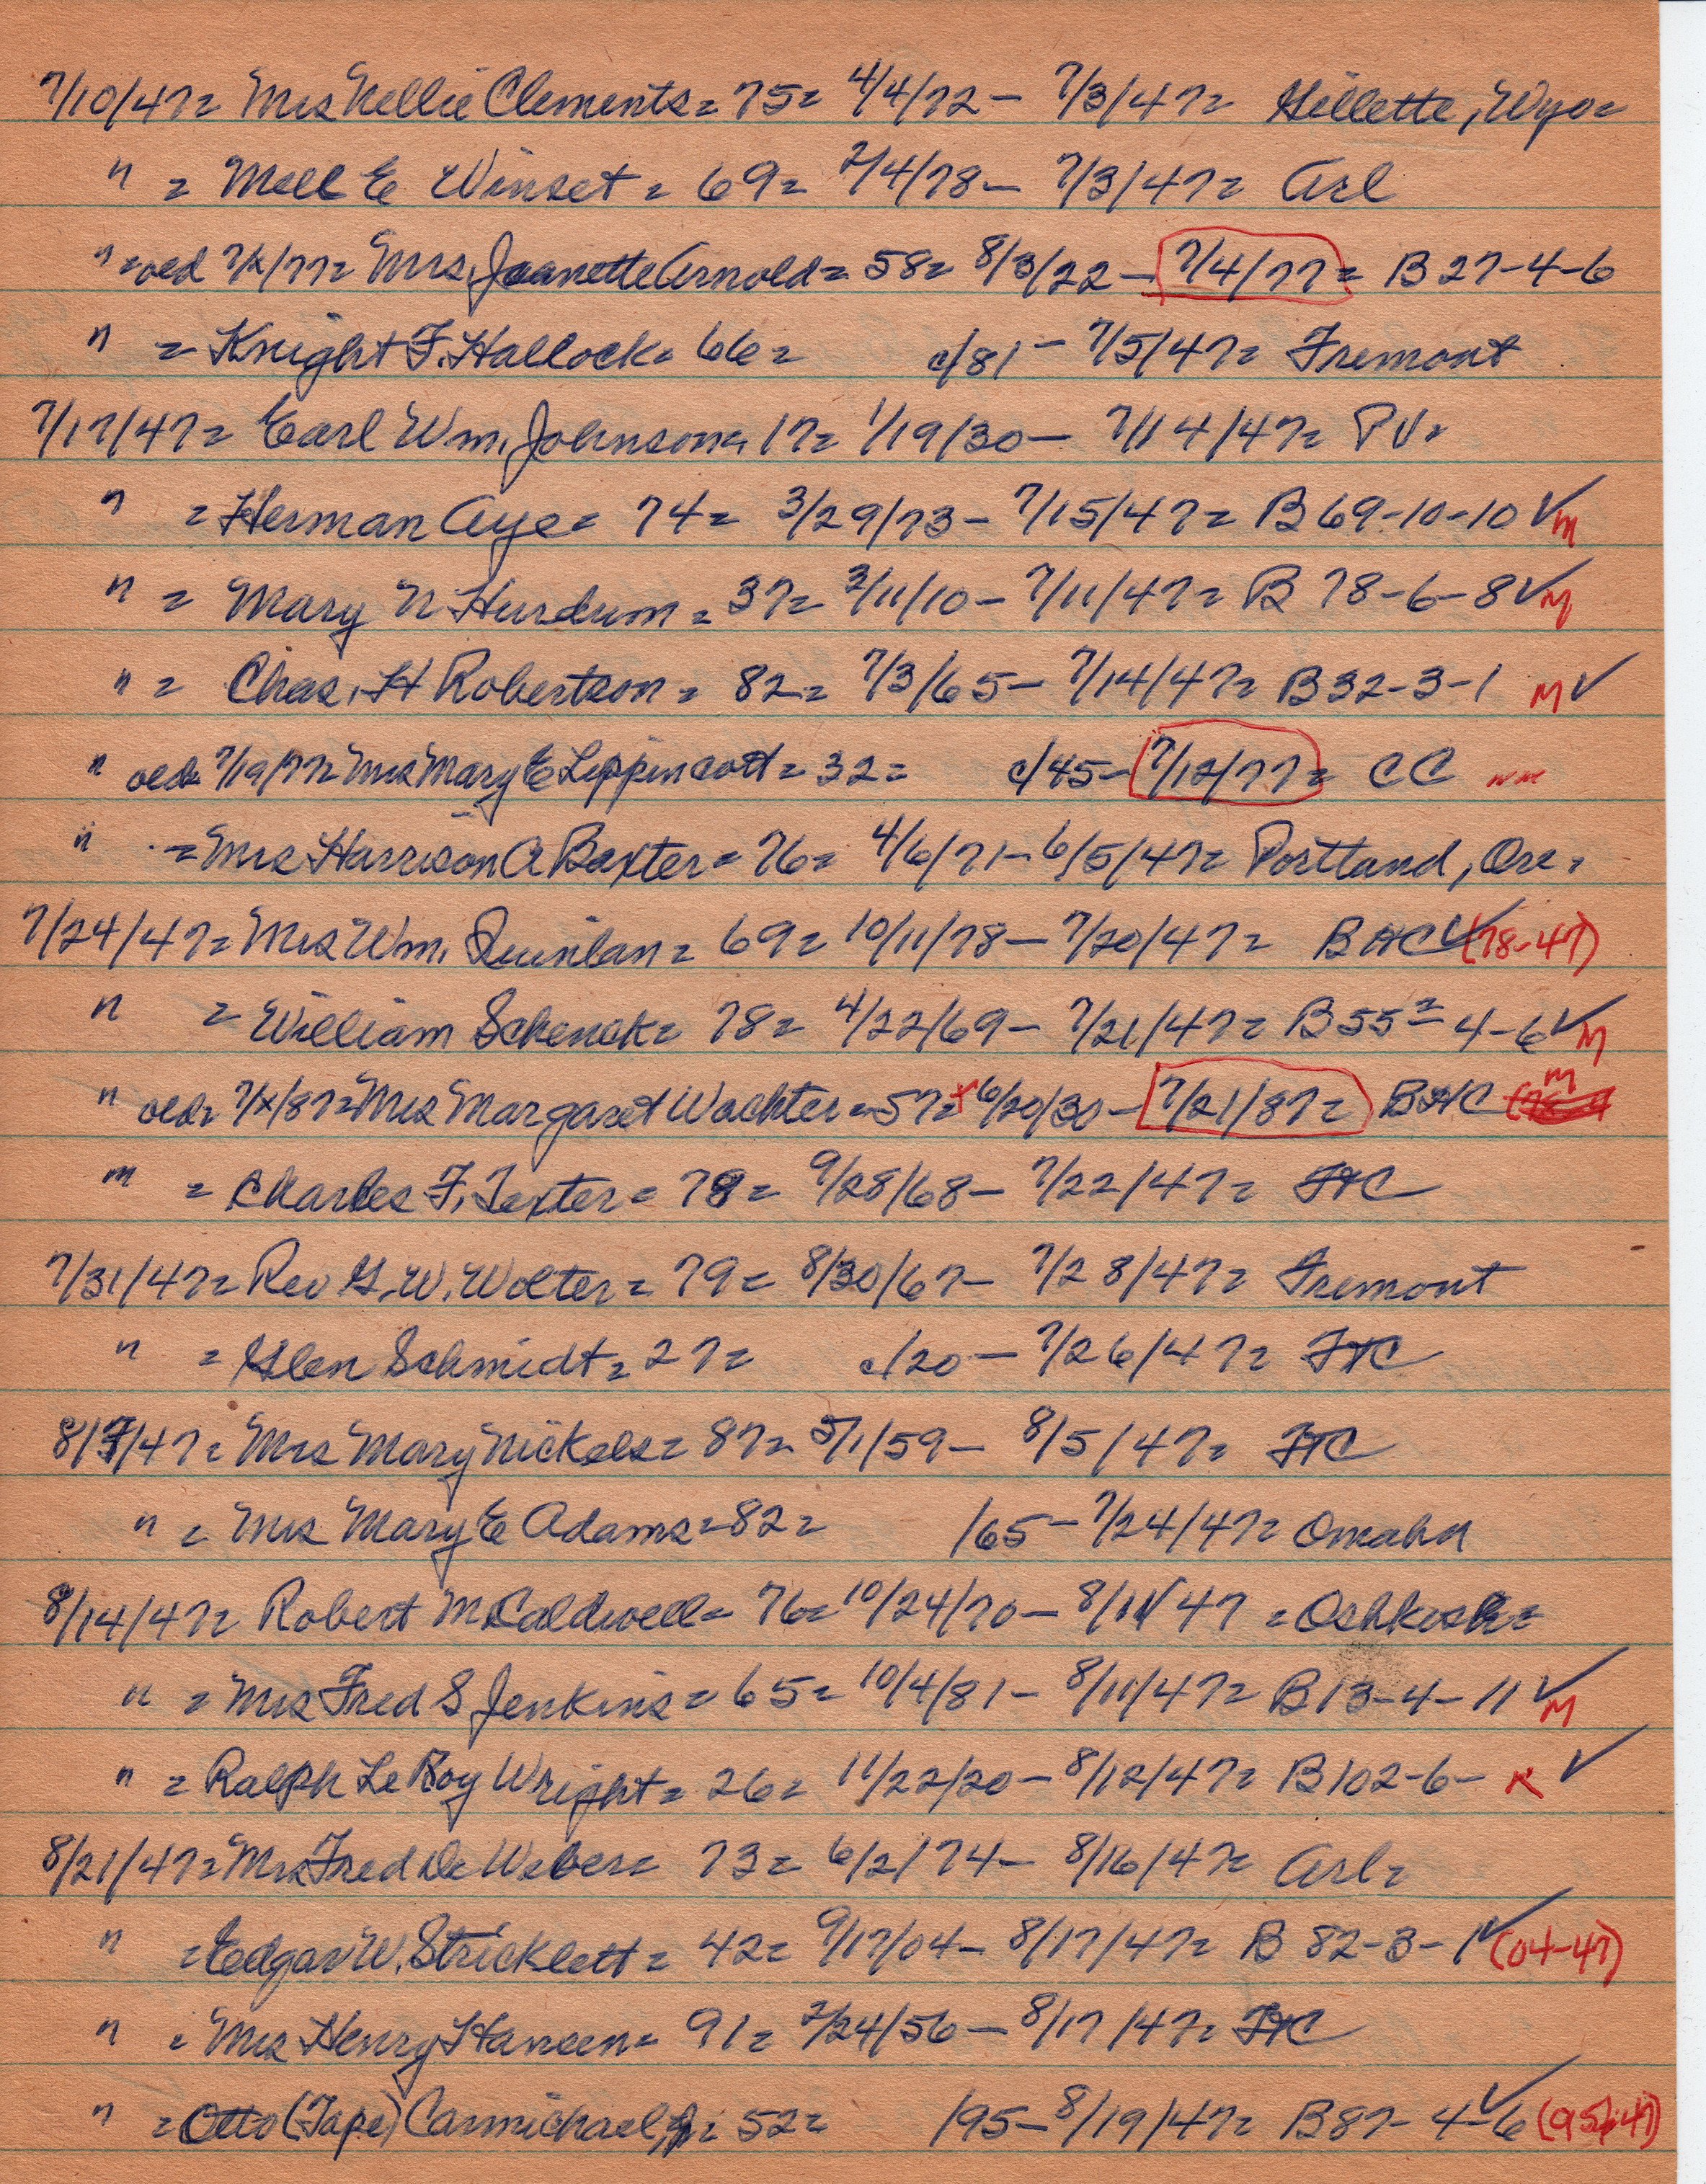 7/10/47= Mrs Nellie Clements= 75= 4/4/72- 7/3/47= Gillette, Wyo=
" = Mell E Winset= 69= 2/4/78- 7/3/47= Arl
" =oed 7/x/77= Mrs Jeanette Arnold= 58= 8/3/22- 7/4/77= B 27-4-6
" = Knight F. Hallock= 66= c/81- 7/5/47= Fremont
7/17/47= Earl Wm. Johnson= 17= 1/19/30- 7/14/47= PV=
" =Herman Aye= 74= 3/29/73- 7/15/47= B 69-10-10 ✓ M
" = Mary N Hurdum= 37= 3/11/10- 7/11/47= B 78-6-8 ✓ M
" = Chas. H Robertson= 82= 7/3/65- 7/14/47= B32-3-1 M ✓
" oed= 7/19/77= Mrs Mary E Lippincott= 32= c/45- 7/12/77= CC
" =Mrs Harrison A Baxter= 76= 4/6/71- 6/5/47= Portland, Ore=
7/24/47= Mrs Wm. Quinlan= 69= 10/11/78- 7/20/47= BHC ✓ (78-47)
" = William Schenck= 78= 4/22/69- 7/21/47= B55= 4-6 ✓ M
" oed= 7/x/87= Mrs Margaret Wachter= 57= x 6/20/30- 7/21/87= BHC M
" = Charles F. Texter= 78= 9/28/68- 7/22/47= FTC
7/31/47= Rev G. W. Wolter= 79= 8/30/67- 7/28/47= Fremont
" = Glen Schmidt= 27= c/20- 7/26/47= FTC
8/7/47= Mrs Mary Nickels= 87= 5/1/59- 8/5/47= FTC
" = Mrs Mary E Adams=82= /65- 7/24/47= Omaha
8/14/47= Robert M Caldwell= 76= 10/24/70- 8/11/47 =Oshkosh=
" = Mrs Fred S Jenkins= 65= 10/4/81- 8/11/47= B13-4-11 ✓ M
" = Ralph LeRoy Wright= 26= 11/22/20- 8/12/47= B102-6- ✓
8/21/47= Mrs Fred De Weber= 73= 6/2/74- 8/16/47= Arl=
" =Edgar W. Stricklett= 42= 9/17/04- 8/17/47= B 82-3-1 ✓ (04-47)
" = Mrs Henry Hansen= 91= 2/24/56- 8/17/47= FTC
" =Otto (Tape) Carmichael, Jr= 52= /95- 8/19/47= B87-4-6 ✓ (95-47)